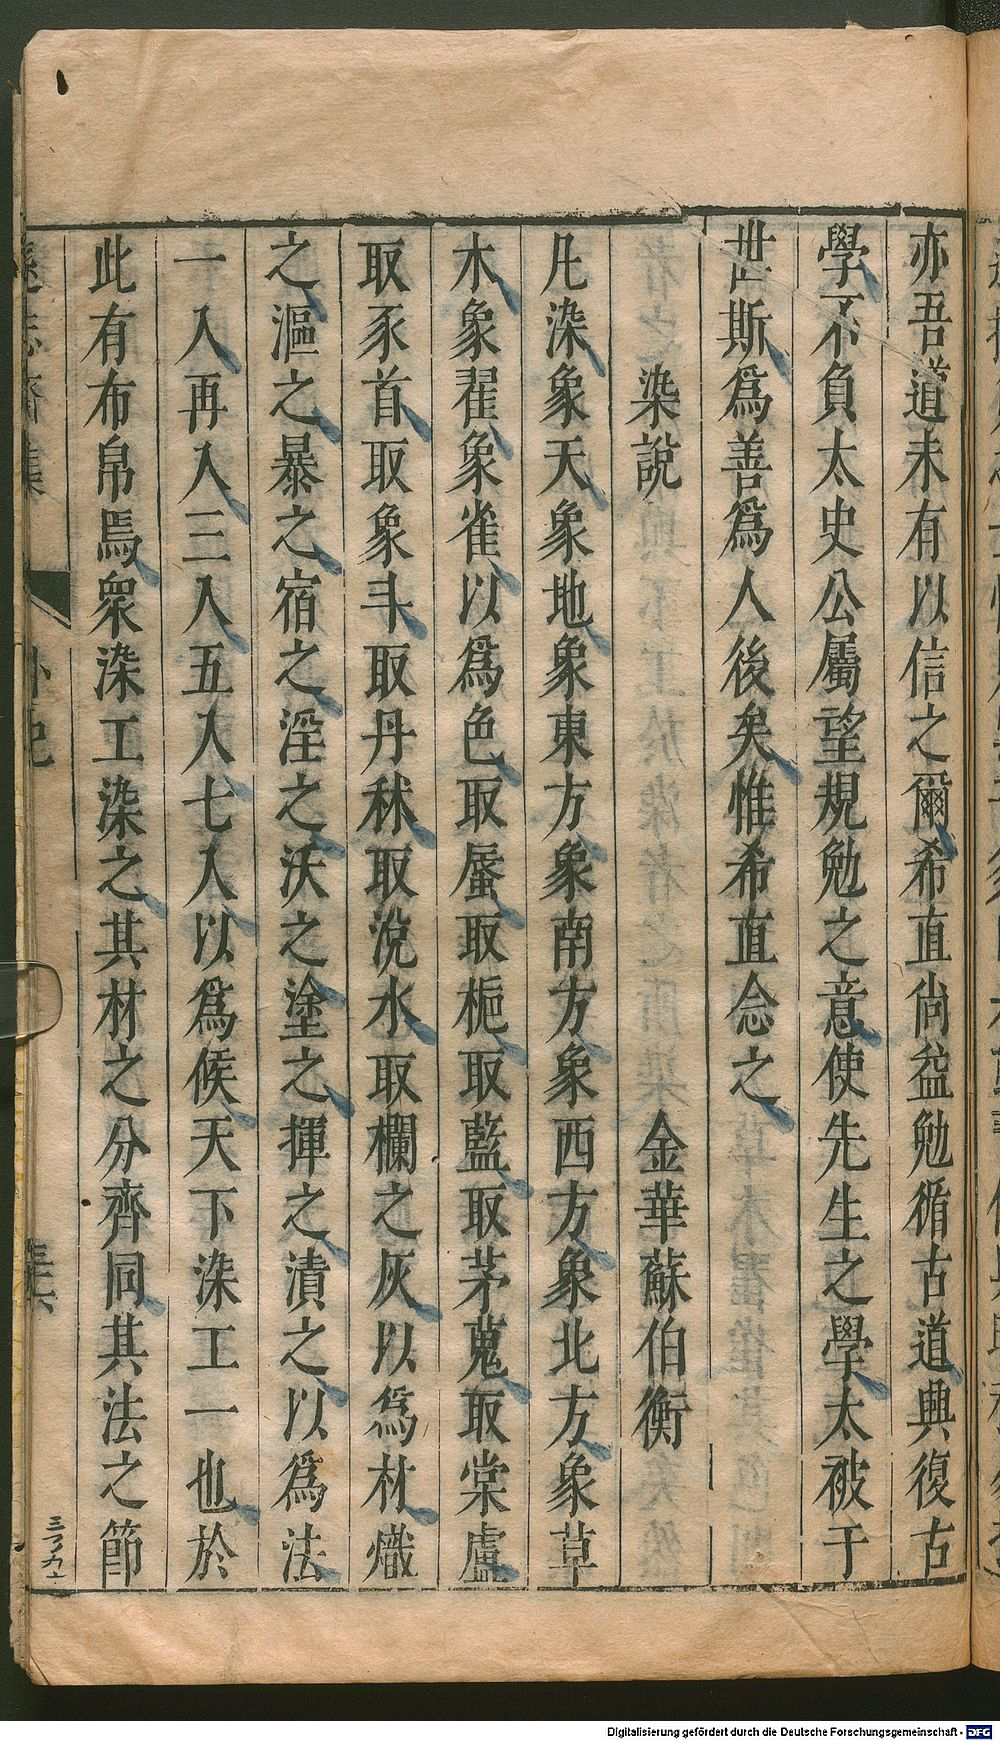 亦吾道未有以信之爾希直尚益勉循古道興復古
學不負太史公屬望規勉之意使先生之學太被于
世斯爲善爲人後矣惟希直念之
染說 金華蘇伯衡
凡染象天象地象東方象南方象西方象北方象草
木象翟象雀以爲色取蜃取梔取藍取茅蒐取棠盧
取豕首取象斗取丹秫取涚水取欄之灰以爲材熾
之漚之暴之宿之淫之沃之塗之揮之漬之以爲法
一入再入三入五入七入以爲候天下染工一也於
此有布帛焉衆染工染之其材之分齊同其法之節
遜志齋集 外紀
Digitalisierung gefördert durch die Deutsche Forschungsgemeinschaft - DFG